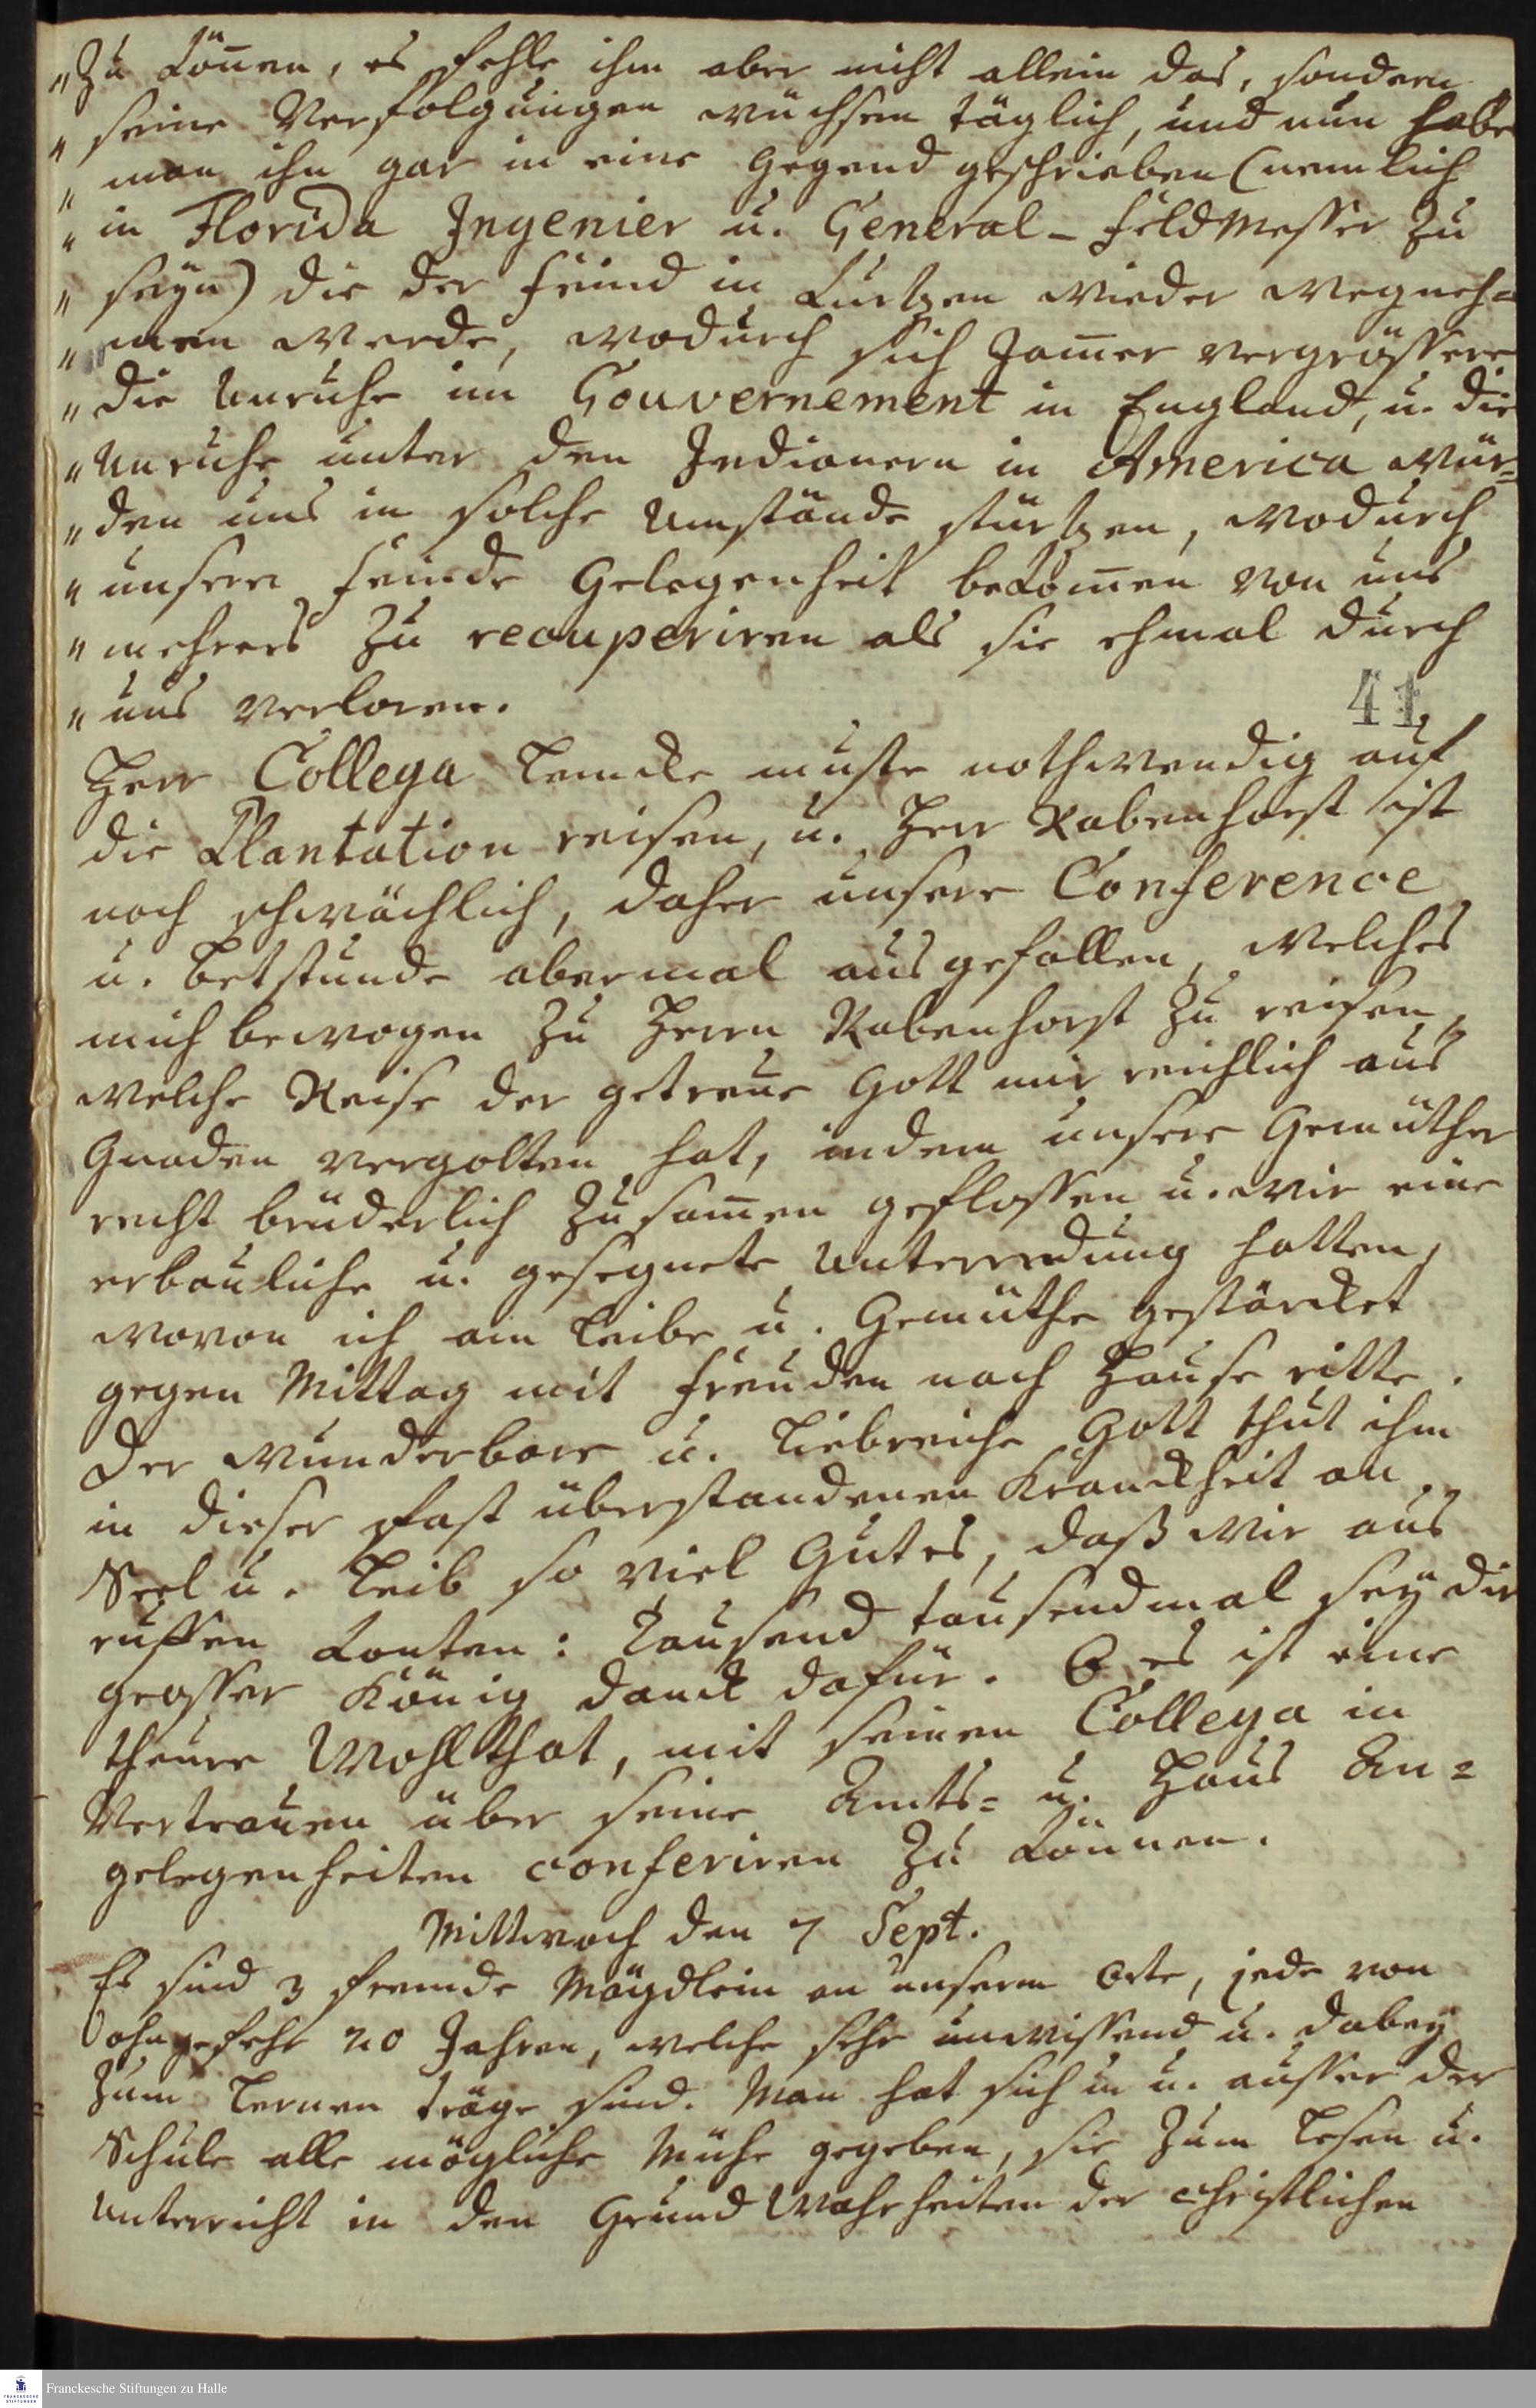 „Zu können, es fehle ihm aber nicht allein das, sondern
„seine Verfolgungen wüchsen täglich, und nun habe
„man ihn gar in eine Gegend geschrieben (nemlich
„in Florida Ingenier u. General-Feldmesser zu
„seyn) die der Feind in Kurtzen wieder wegneh=
„men werde, wodurch sich Jam̅er vergrössere
„die Unruhe im Gouvernement in England, u. die
„Unruhe unter den Indianern in America wür=
„den uns in solche Umstände stürtzen, wodurch
„unsere Feinde Gelegenheit bekom̅en von uns
„mehrers zu recuperiren als sie ehmal durch
„uns verloren.
41
Herr Collega Lemcke muste nothwendig auf
die Plantation reisen, u. Herr Rabenhorst ist
noch schwächlich, daher unsere Conference
u. Betstunde abermal ausgefallen, welches
mich bewogen zu Herrn Rabenhorst zu reisen,
welche Reise der getreue Gott mir reichlich aus
Gnaden vergolten hat, indem unsere Gemüther
recht brüderlich zusam̅en geflossen u. wir eine
erbauliche u. gesegnete Unterredung hatten,
wovon ich am Leibe u. Gemüthe gestärcket
gegen Mittag mit Freuden nach Hause ritte.
Der wunderbare u. Liebreiche Gott thut ihm
in dieser fast überstandenen Kranckheit an
Seel u. Leib so viel Gutes, daß wir aus
ruffen konten: Tausend tausendmal sey dir
grosser König danck dafür. O es ist eine
theure Wohlthat, mit seinen Collega in
Vertrauen über seine Amts= u. Haus An=
gelegenheiten conferiren zu können.
Mittwoch den 7 Sept.
Es sind 3 fremde Mägdlein an unserm Orte, jede von
ohngefehr 20 Jahren, welche sehr unwissend u. dabey
zum Lernen träge sind. Man hat sich in u. ausser der
Schule alle mögliche Mühe gegeben, sie zum Lesen u.
Unterricht in den Grund Wahrheiten der christlichen
FRANCKESCHE STIFTUNGEN
Franckesche Stiftungen zu Halle